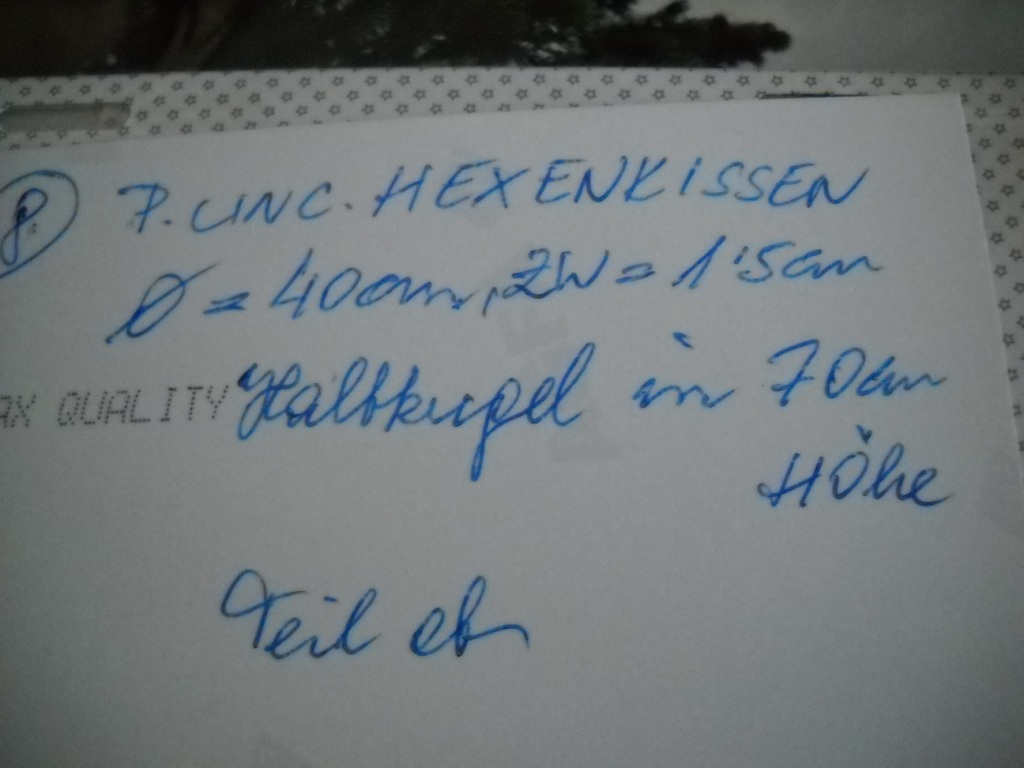 8. P. UNC. HEXENKISSEN
Ø = 40cm, ZW = 1'5cm
AX QUALITY Halbkugel in 70cm
Höhe
Teil